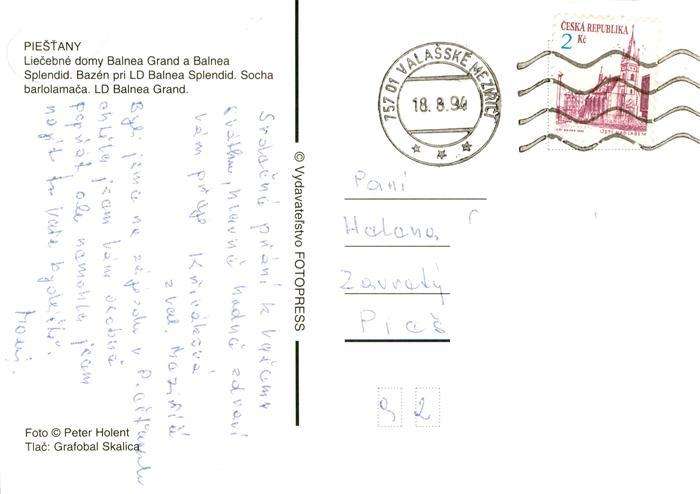 PIEŠŤANY
Liečebné domy Balnea Grand a Balnea
Splendid. Bazén pri LD Balnea Splendid. Socha
barlolamača. LD Balnea Grand.
Srdečné přání k vašemu
svátku, hlavně hodně zdraví
vám přeje Křiváková
z Val. Meziříčí
Byli jsme na zájezdu v Piešťanech
chtěla jsem vám osobně
popřát ale nemohla jsem
najít to vaše bydliště.
© Vydavateľstvo FOTOPRESS
Foto © Peter Holent
Tlač: Grafobal Skalica
757 01 VALAŠSKÉ MEZIŘÍČÍ
18.8.94
ČESKÁ REPUBLIKA
2 Kč
Paní
Halana
Zavretý
Pieš
92